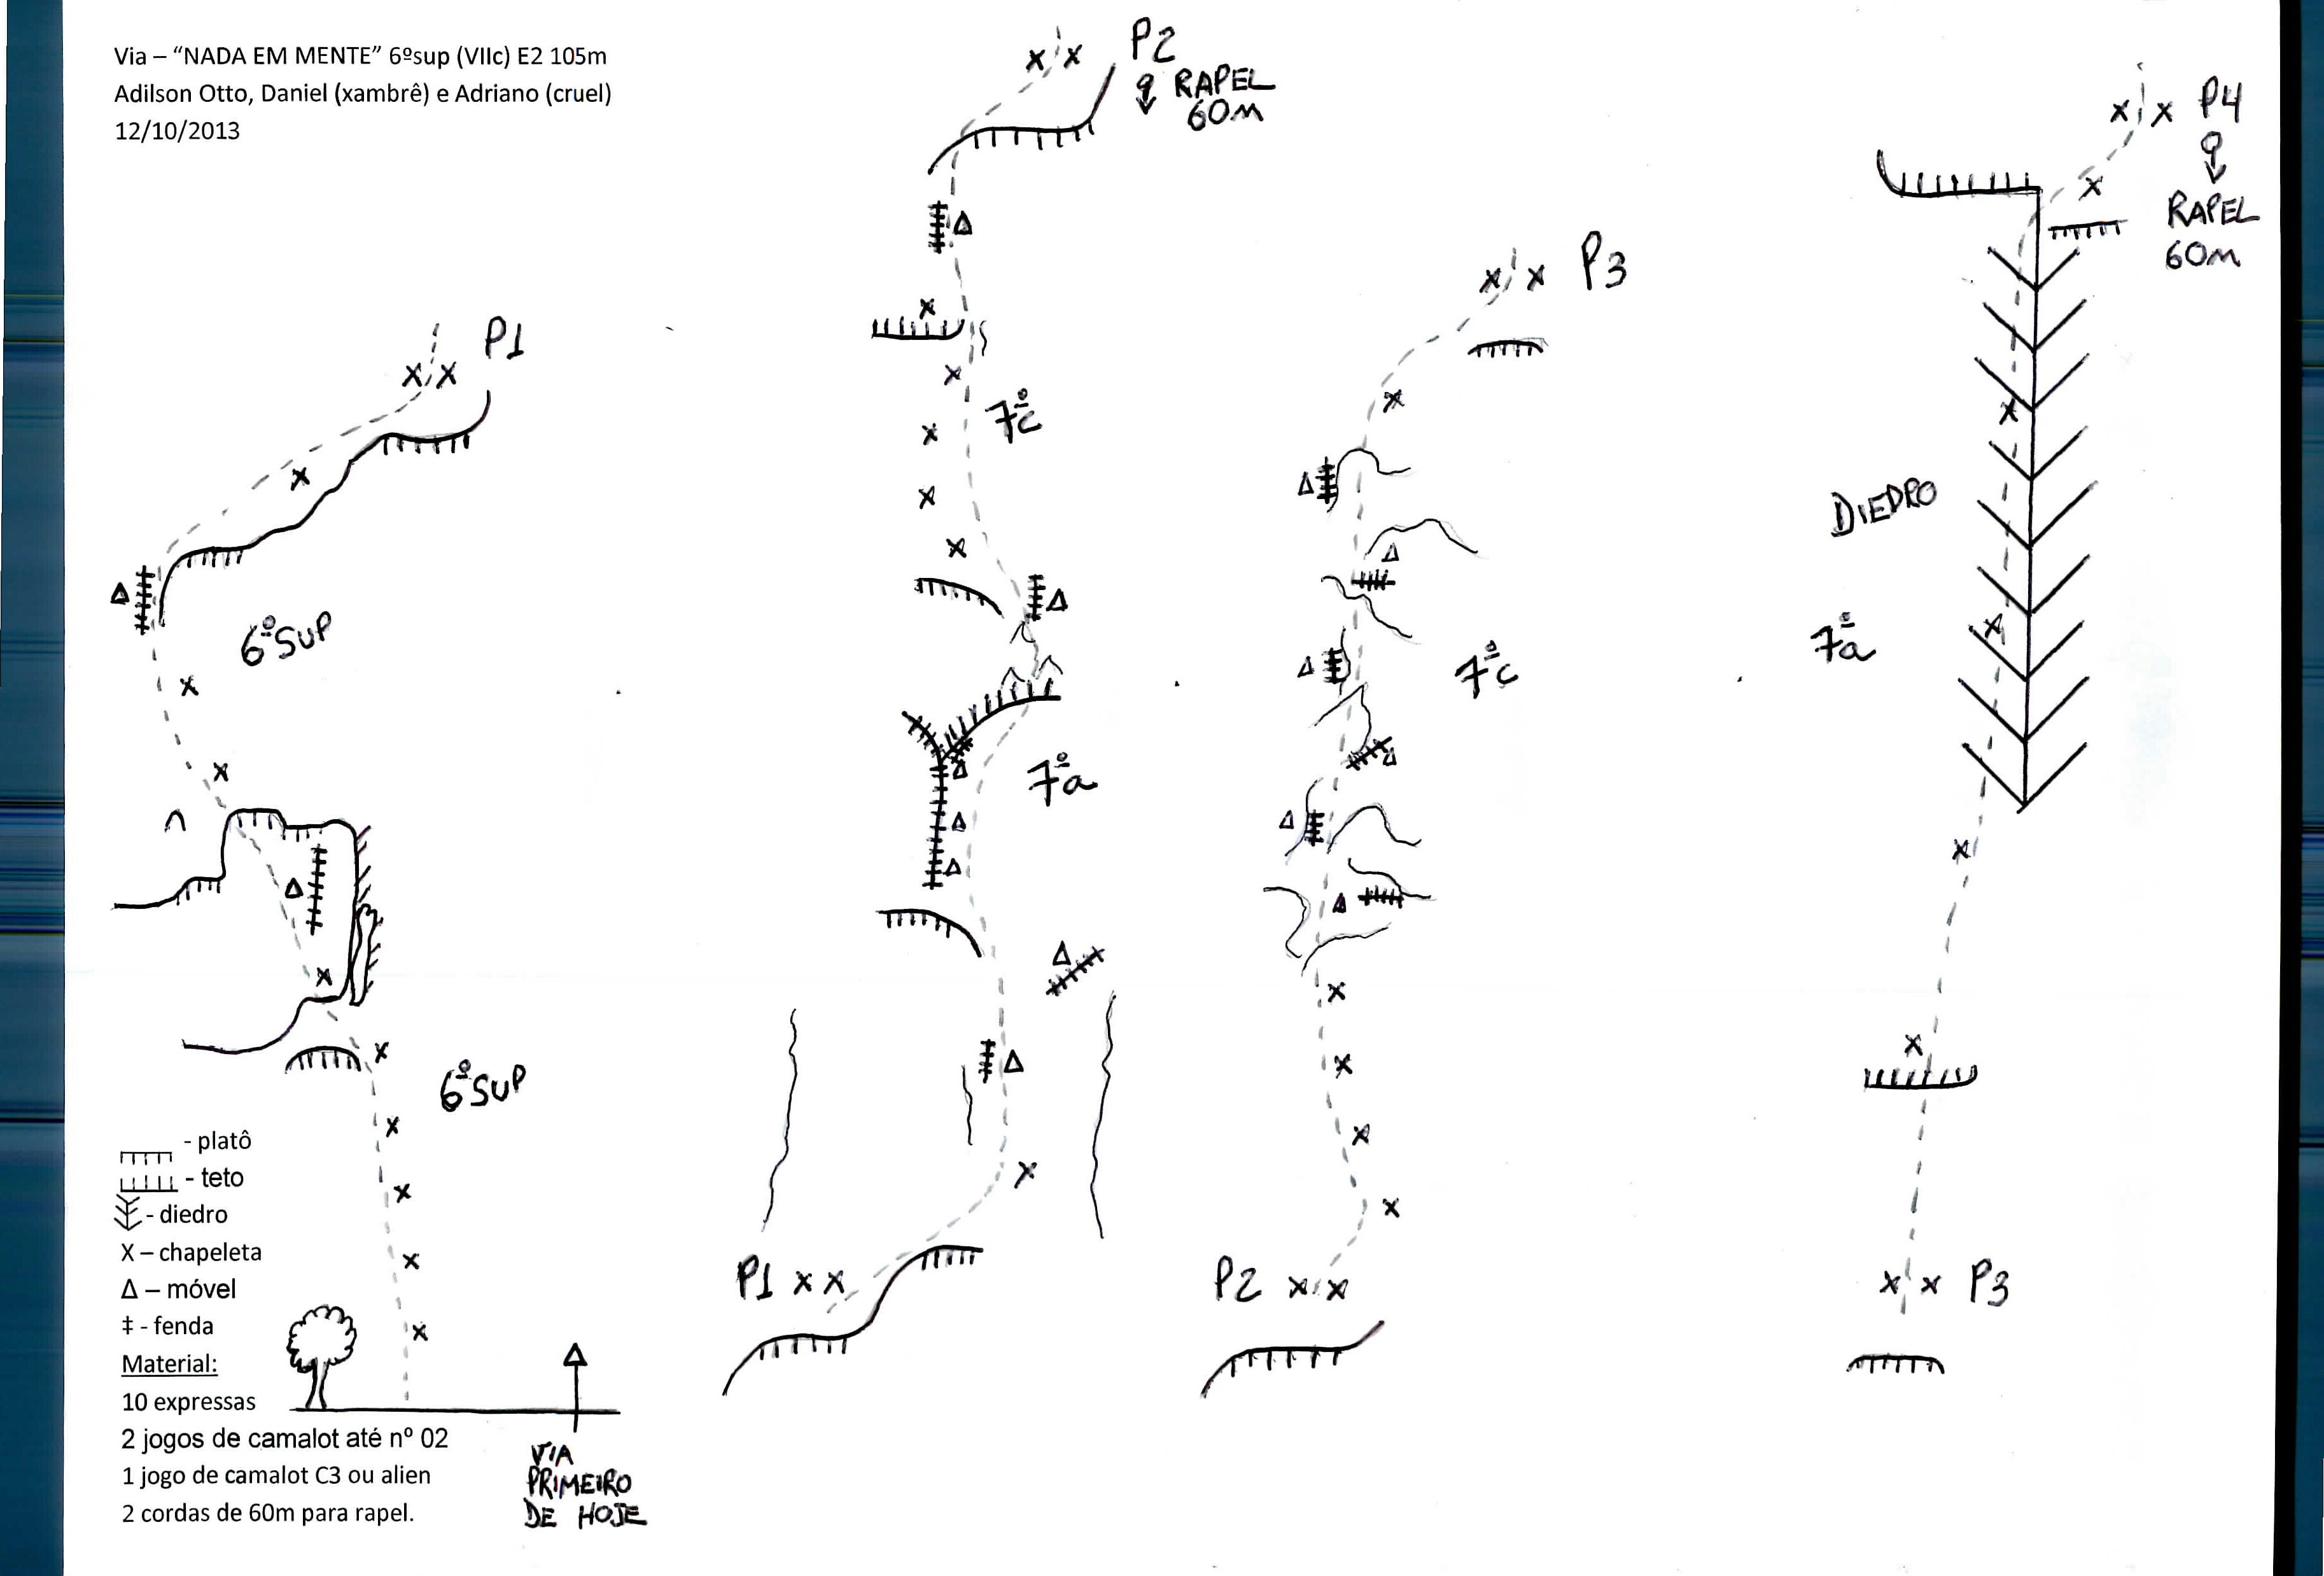 Via – “NADA EM MENTE” 6ºsup (VIIc) E2 105m
Adilson Otto, Daniel (xambrê) e Adriano (cruel)
12/10/2013
P1
6ºSUP
6ºSUP
- platô
- teto
- diedro
X – chapeleta
Δ – móvel
‡ - fenda
Material:
10 expressas
2 jogos de camalot até nº 02
1 jogo de camalot C3 ou alien
2 cordas de 60m para rapel.
VIA
PRIMEIRO
DE HOJE
P2
RAPEL
60M
7ºc
7ºa
P1
P3
7ºc
P2
P4
RAPEL
60M
DIEDRO
7ºa
P3